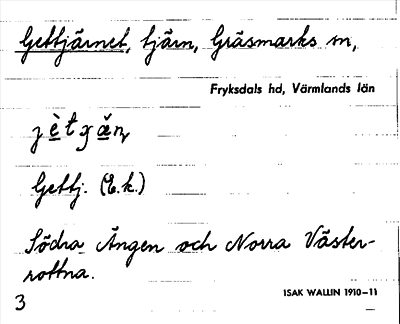 Gettjärnet, tjärn, Gräsmarks sn,
Fryksdals hd, Värmlands län
Gettj. (E.k.)
Södra Ängen och Norra Väster-
rottna.
3
ISAK WALLIN 1910–11